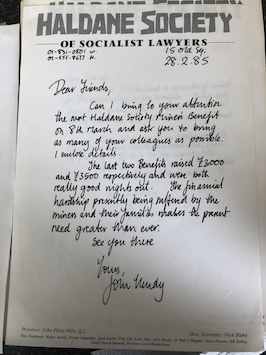 HALDANE SOCIETY
OF SOCIALIST LAWYERS
15 Old Sq.
28.2.85
Dear Friends,
Can I bring to your attention
the next Haldane Society Miners Benefit
on 8th March and ask you to bring
as many of your colleagues as possible.
I enclose details.
The last two Benefits raised £3000
and £3500 respectively and were both
really good nights out. The financial
hardship presently being suffered by the
miners and their families makes the present
need greater than ever.
See you there
Yours,
John Hendy
President: John Platts-Mills, Q.C.
Hon. Secretary: Nick Blake